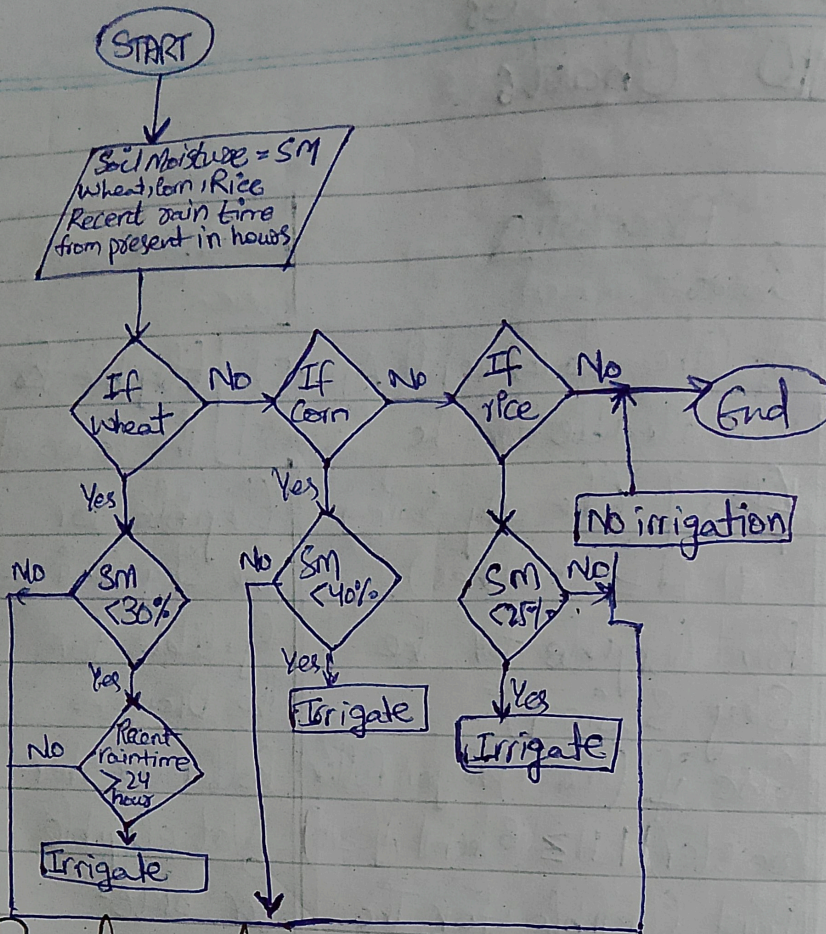 START
Soil Moisture = SM
Wheat, Corn, Rice
Recent rain time
from present in hours
If
wheat
No
If
Corn
No
If
rice
No
End
Yes
Yes
No irrigation
No
SM
<30%
No
SM
<40%
SM
<25%
No
Yes
Yes
Yes
Irrigate
Irrigate
No
Recent
raintime
>24
hour
Irrigate